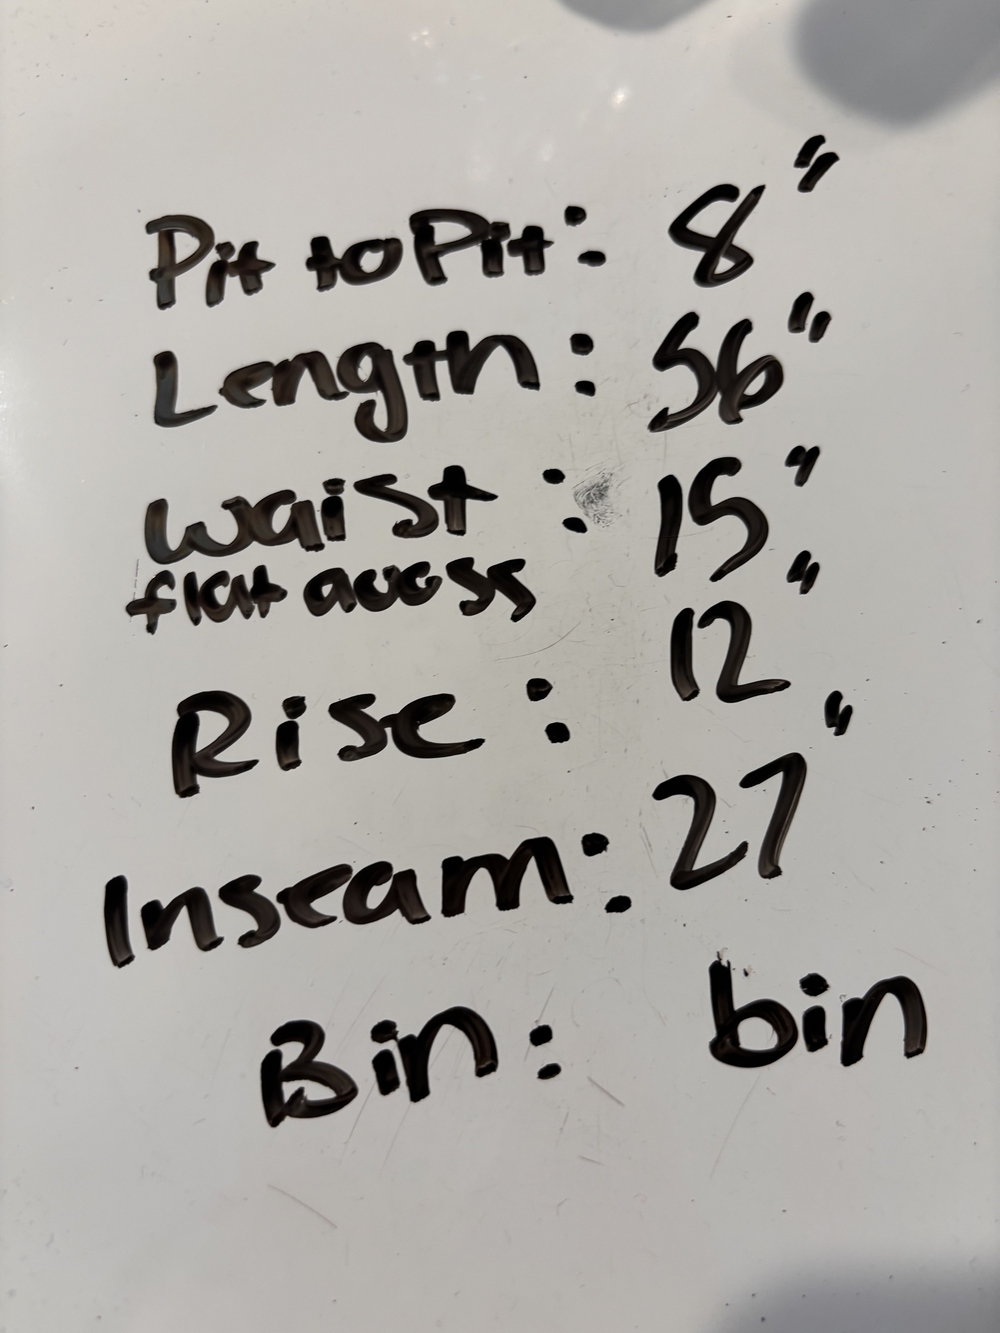 Pit to Pit: 8"
Length: 56"
Waist : 15"
flat across
Rise : 12"
Inseam: 27"
Bin: bin